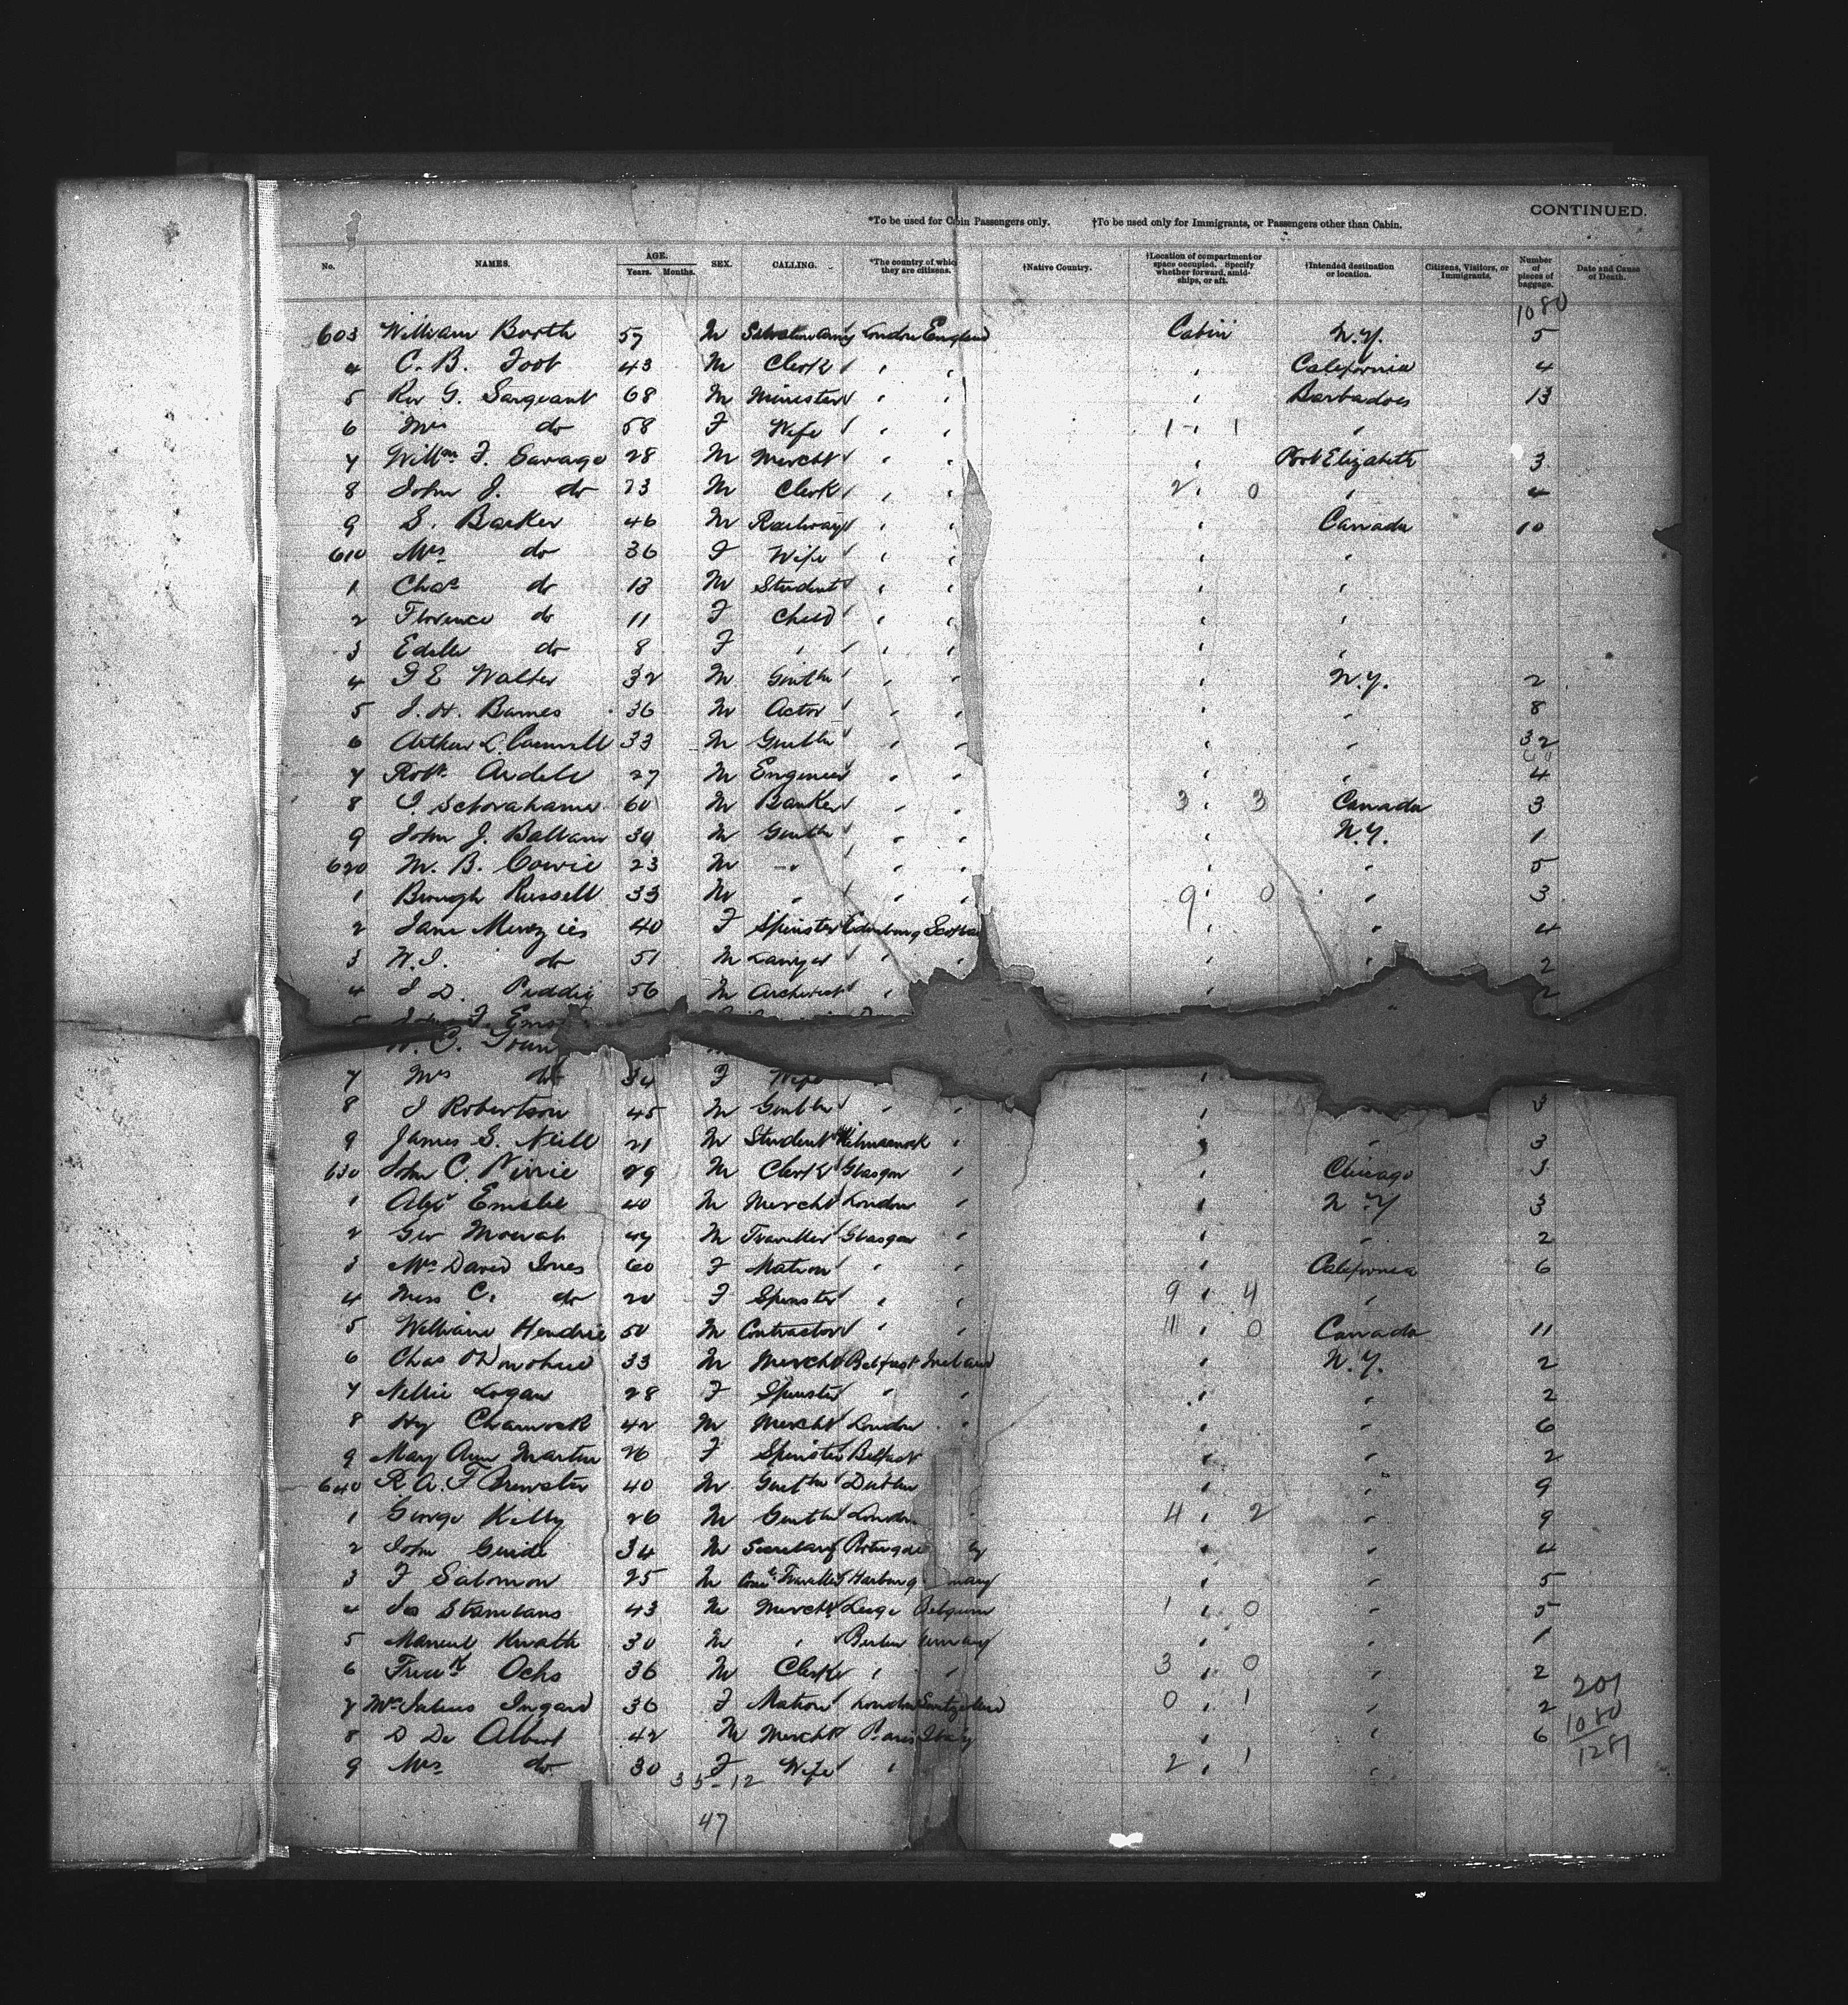 CONTINUED.
*To be used for Cabin Passengers only. †To be used only for Immigrants, or Passengers other than Cabin.
No. NAMES. AGE. Years. Months. SEX. CALLING. *The country of which they are citizens. †Native Country. †Location of compartment or space occupied. Specify whether forward, amidships, or aft. †Intended destination or location. Citizens, Visitors, or Immigrants. Number of pieces of baggage. Date and Cause of Death.
1080
603 William Booth 57 M London England Cabin N.Y. 5
4 C. B. Foot 43 M Clerk " " " California 4
5 Rev G. Sargeant 68 M Minister " " " Barbadoes 13
6 Mrs do 58 F Wife " " 1 " 1 "
7 Willm F. Savage 28 M Mercht " " " Port Elizabeth 3
8 John J. do 23 M Clerk " " 2 " 0 " 4
9 S. Barker 46 M Railway " " " Canada 10
610 Mrs do 36 F Wife " " " "
1 Chas do 13 M Student " " " "
2 Florence do 11 F Child " " " "
3 do 8 F " " " " "
4 F E Walter 32 M Gentln " " " N.Y. 2
5 J. H. Barnes 36 M Actor " " " " 8
6 Arthur L. 33 M Gentln " " " " 32
7 Robt 27 M Engineer " " " " 4
8 60 M Banker " " 3 " 3 Canada 3
9 John J. 39 M Gentln " " " N.Y. 1
620 M. B. Cowie 23 M " " " " " 5
1 Brough Russell 33 M " " " 9 " 0 " 3
2 Jane Menzies 40 F Spinster Edinburg Scotland " " 4
3 W. J. do 51 M Lawyer " " " " 2
4 J D. Peddie 56 M Architect " " 2
5 John F.
W. C.
7 Mrs do 34 F Wife "
8 J Robertson 45 M Gentln " " " 3
9 James S. Neill 21 M Student Kilmarnock " " " 3
630 John C. Pirrie 29 M Clerk Glasgow " " Chicago 3
1 Alexr Emslie 40 M Mercht London " " N.Y 3
2 Geo Mowat 47 M Traveller Glasgow " " " 2
3 Mrs David Innes 60 F Matron " " " California 6
4 Miss C. do 20 F Spinster " " 9 " 4 "
5 William Hendrie 50 M Contractor " " " 0 Canada 11
6 Chas O'Donohue 33 M Mercht Belfast Ireland " N.Y. 2
7 Nellie Logan 28 F Spinster " " " " 2
8 Hy Charnock 42 M Mercht London " " " 6
9 Mary Ann Martin 26 F Spinster Belfast " " 2
640 R A. F Brewster 40 M Gentln Dublin " " 9
1 George Kelly 26 M Gentln London 4 " 2 " 9
2 John Guide 34 M Secretary " " 4
3 F Salomon 25 M Coml Traveller Harburg many " " 5
4 43 M Mercht Liege Belgium 1 " 0 " 5
5 30 M " Berlin Germany " " 1
6 Fredk Ochs 36 M Clerk " " 3 " 0 " 2
7 Mrs Julius 36 F Matron London Switzerland 0 " 1 " 2
8 D De Albert 42 M Mercht Paris Italy " " 6
9 Mrs do 30 F Wife " 2 " 1 "
201
1080
1281
35-12
47